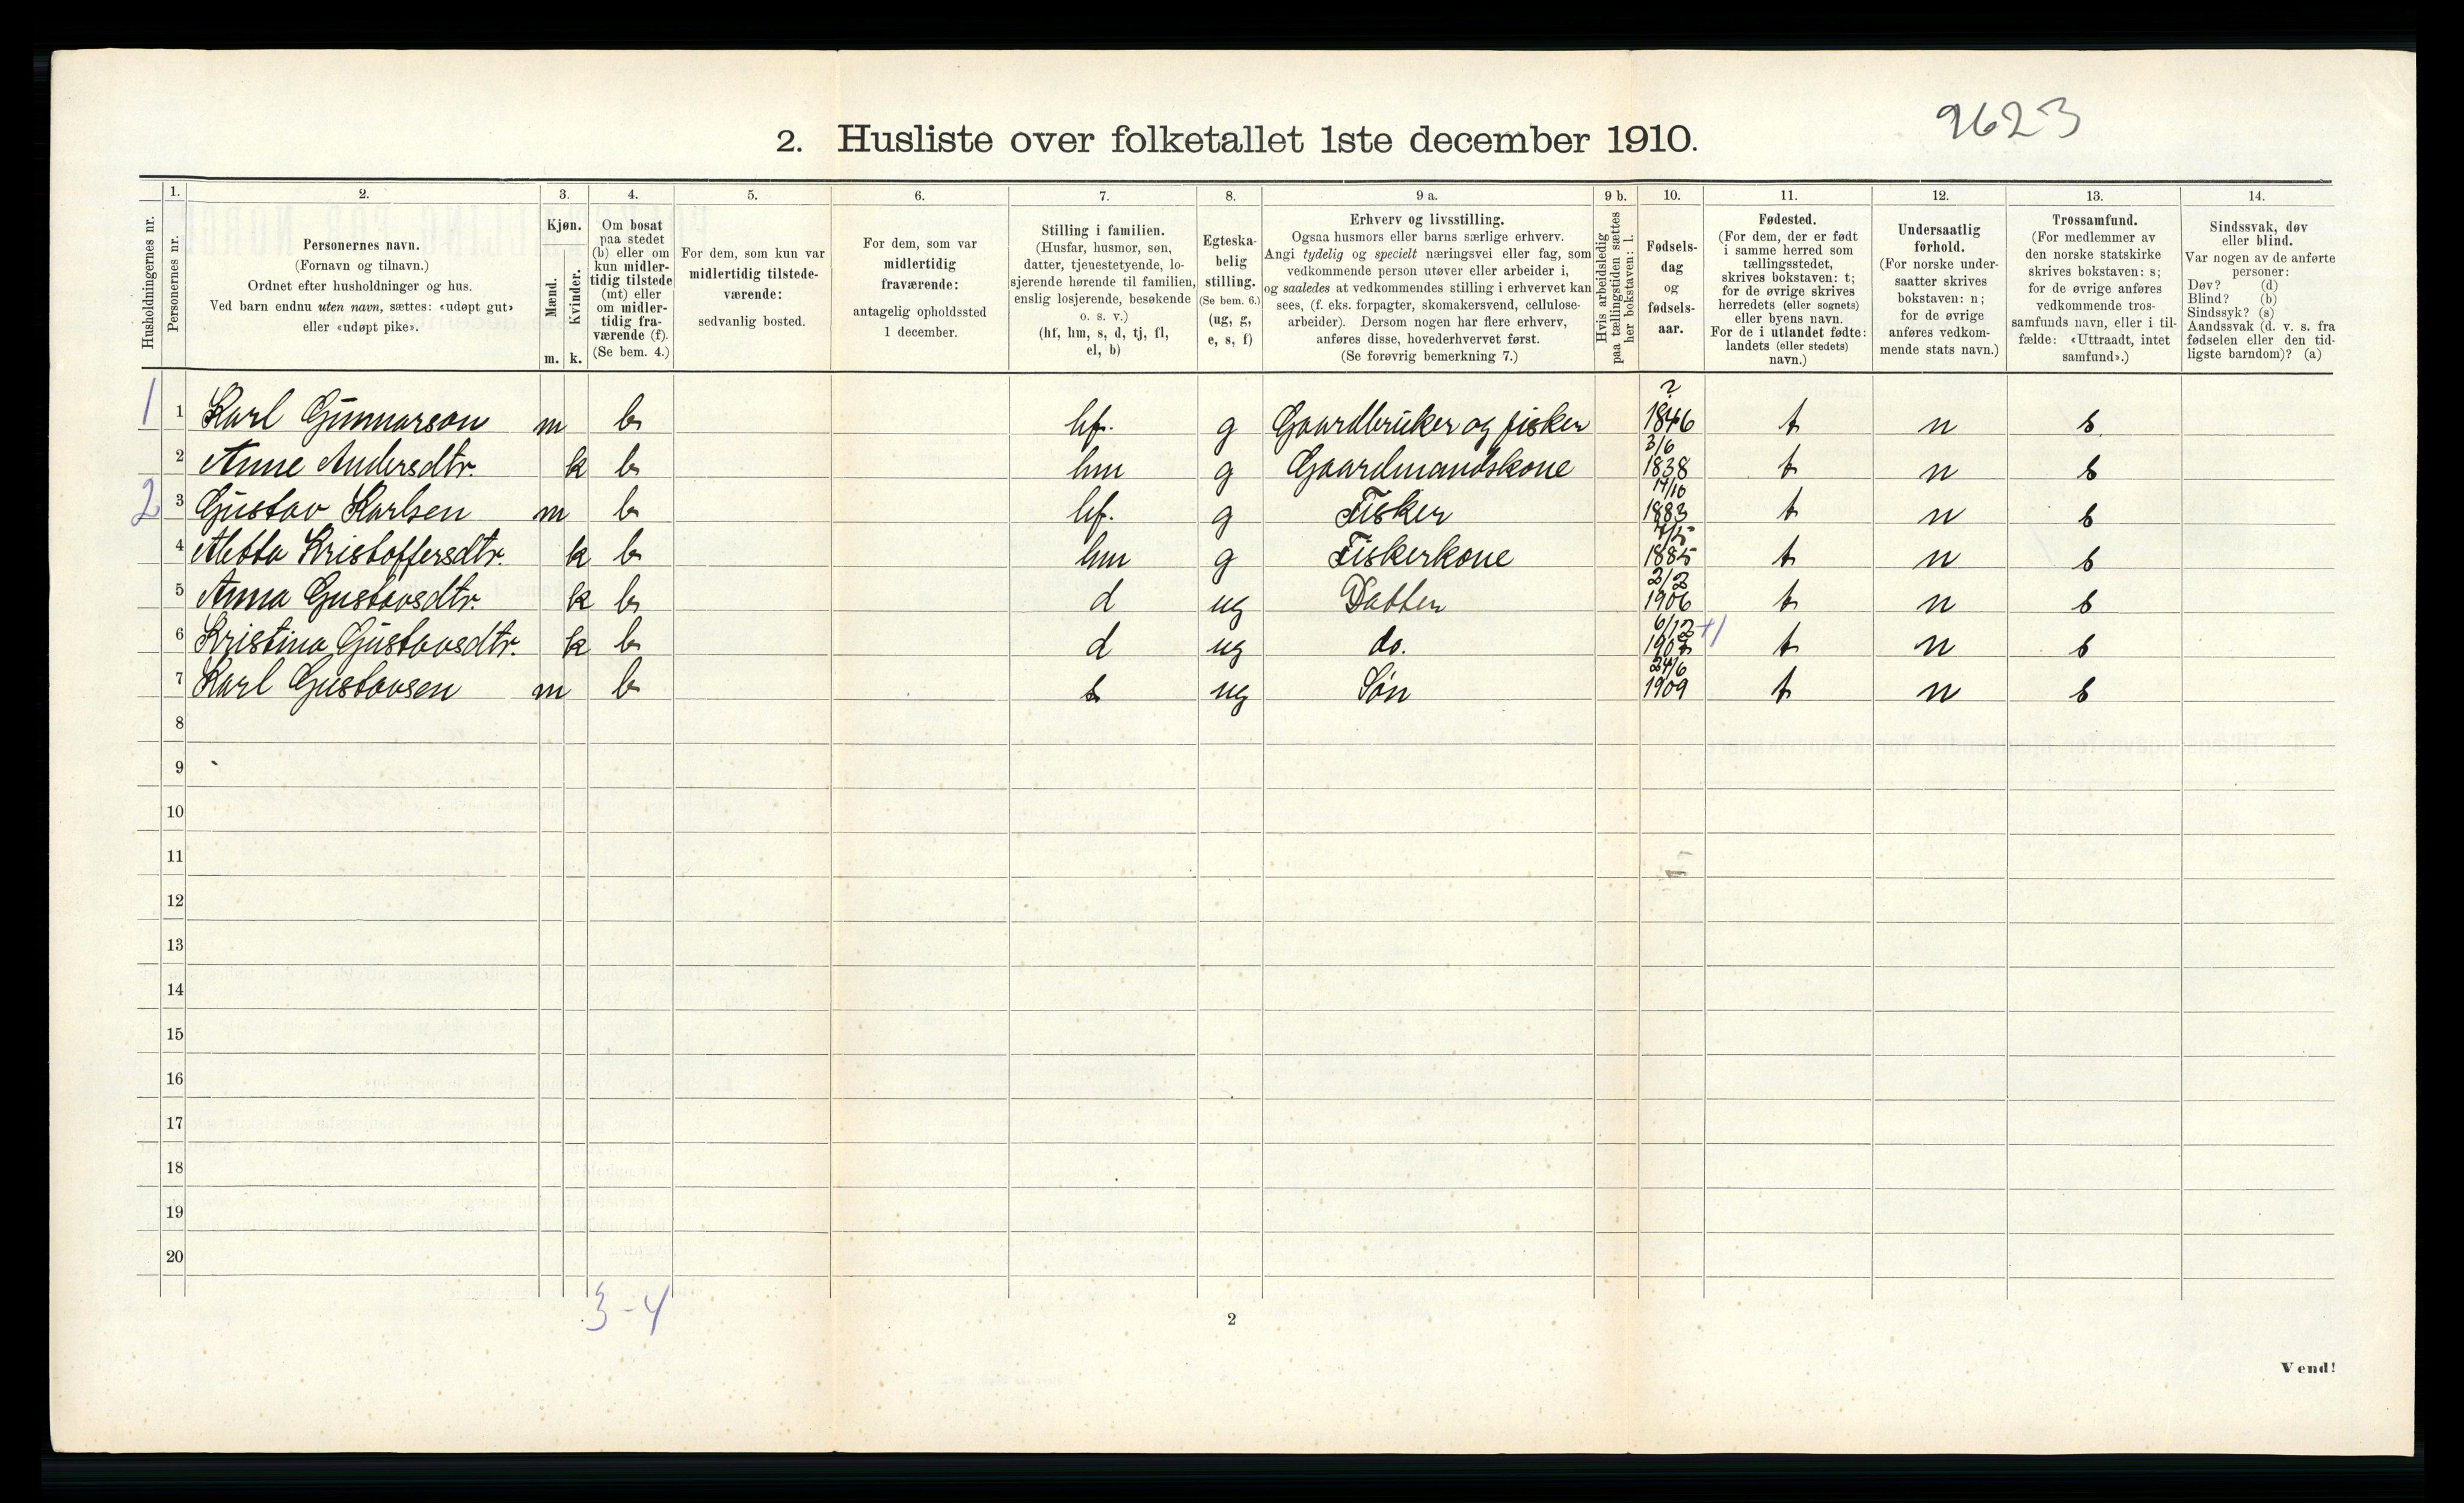 9623
2. Husliste over folketallet 1ste december 1910.
1. 2. 3. 4. 5. 6. 7. 8. 9 a. 9 b. 10. 11. 12. 13. 14.
Husholdningernes nr.
Personernes nr.
Personernes navn.
(Fornavn og tilnavn.)
Ordnet efter husholdninger og hus.
Ved barn endnu uten navn, sættes: «udøpt gut»
eller «udøpt pike».
Kjøn.
Mænd.
Kvinder.
m. k.
Om bosat
paa stedet
(b) eller om
kun midler-
tidig tilstede
(mt) eller
om midler-
tidig fra-
værende (f).
(Se bem. 4.)
For dem, som kun var
midlertidig tilstede-
værende:
sedvanlig bosted.
For dem, som var
midlertidig
fraværende:
antagelig opholdssted
1 december.
Stilling i familien.
(Husfar, husmor, søn,
datter, tjenestetyende, lo-
sjerende hørende til familien,
enslig losjerende, besøkende
o. s. v.)
(hf, hm, s, d, tj, fl,
el, b)
Egteska-
belig
stilling.
(Se bem. 6.)
(ug, g,
e, s, f)
Erhverv og livsstilling.
Ogsaa husmors eller barns særlige erhverv.
Angi tydelig og specielt næringsvei eller fag, som
vedkommende person utøver eller arbeider i,
og saaledes at vedkommendes stilling i erhvervet kan
sees, (f. eks. forpagter, skomakersvend, cellulose-
arbeider). Dersom nogen har flere erhverv,
anføres disse, hovederhvervet først.
(Se forøvrig bemerkning 7.)
Hvis arbeidsledig
paa tællingstiden sættes
her bokstaven: l.
Fødsels-
dag
og
fødsels-
aar.
Fødested.
(For dem, der er født
i samme herred som
tællingsstedet,
skrives bokstaven: t;
for de øvrige skrives
herredets (eller sognets)
eller byens navn.
For de i utlandet fødte:
landets (eller stedets)
navn.)
Undersaatlig
forhold.
(For norske under-
saatter skrives
bokstaven: n;
for de øvrige
anføres vedkom-
mende stats navn.)
Trossamfund.
(For medlemmer av
den norske statskirke
skrives bokstaven: s;
for de øvrige anføres
vedkommende tros-
samfunds navn, eller i til-
fælde: «Uttraadt, intet
samfund».)
Sindssvak, døv
eller blind.
Var nogen av de anførte
personer:
Døv? (d)
Blind? (b)
Sindssyk? (s)
Aandssvak (d. v. s. fra
fødselen eller den tid-
ligste barndom)? (a)
1 1 Karl Gunnarson m b hf. g Gaardbruker og fisker ? 1846 t n s.
2 Anne Andersdtr. k b hm g Gaardmandskone 3/6 1838 t n s
2 3 Gustav Karlsen m b hf. g Fisker 17/10 1883 t n s
4 Aletta Kristoffersdtr. k b hm g Fiskerkone 7/5 1885 t n s
5 Anna Gustavsdtr. k b d ug Datter 2/2 1906 t n s
6 Kristina Gustavsdtr. k b d ug do. 6/12 1907 t n s
7 Karl Gustavsen m b s ug Søn 24/6 1909 t n s
8
9
10
11
12
13
14
15
16
17
18
19
20
3-4
2
Vend!